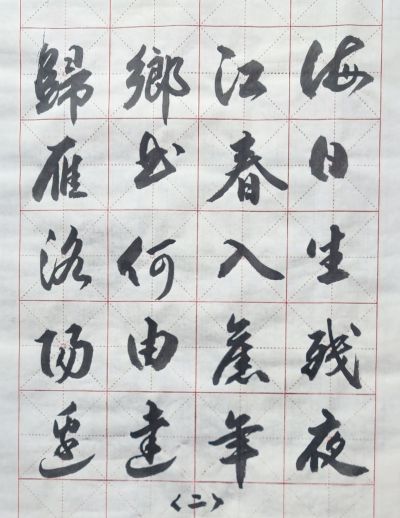 海日生残夜
江春入舊年
鄉書何由達
歸雁洛陽邊
〈二〉